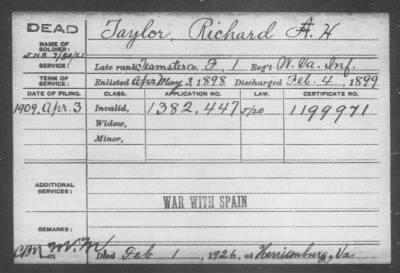 DEAD
NAME OF SOLDIER: Taylor, Richard A. H
SERVICE: Late rank, Teamster Co. F, 1 Reg't W. Va. Inf.
TERM OF SERVICE: Enlisted Apr May 3, 1898 Discharged Feb. 4, 1899
DATE OF FILING. CLASS. APPLICATION NO. LAW. CERTIFICATE NO.
1909, Apr. 3 Invalid, 1382.447 5/20 1199971
Widow,
Minor,
ADDITIONAL SERVICES:
WAR WITH SPAIN
REMARKS:
Died Feb 1, 1926, at Harrisonburg, Va.